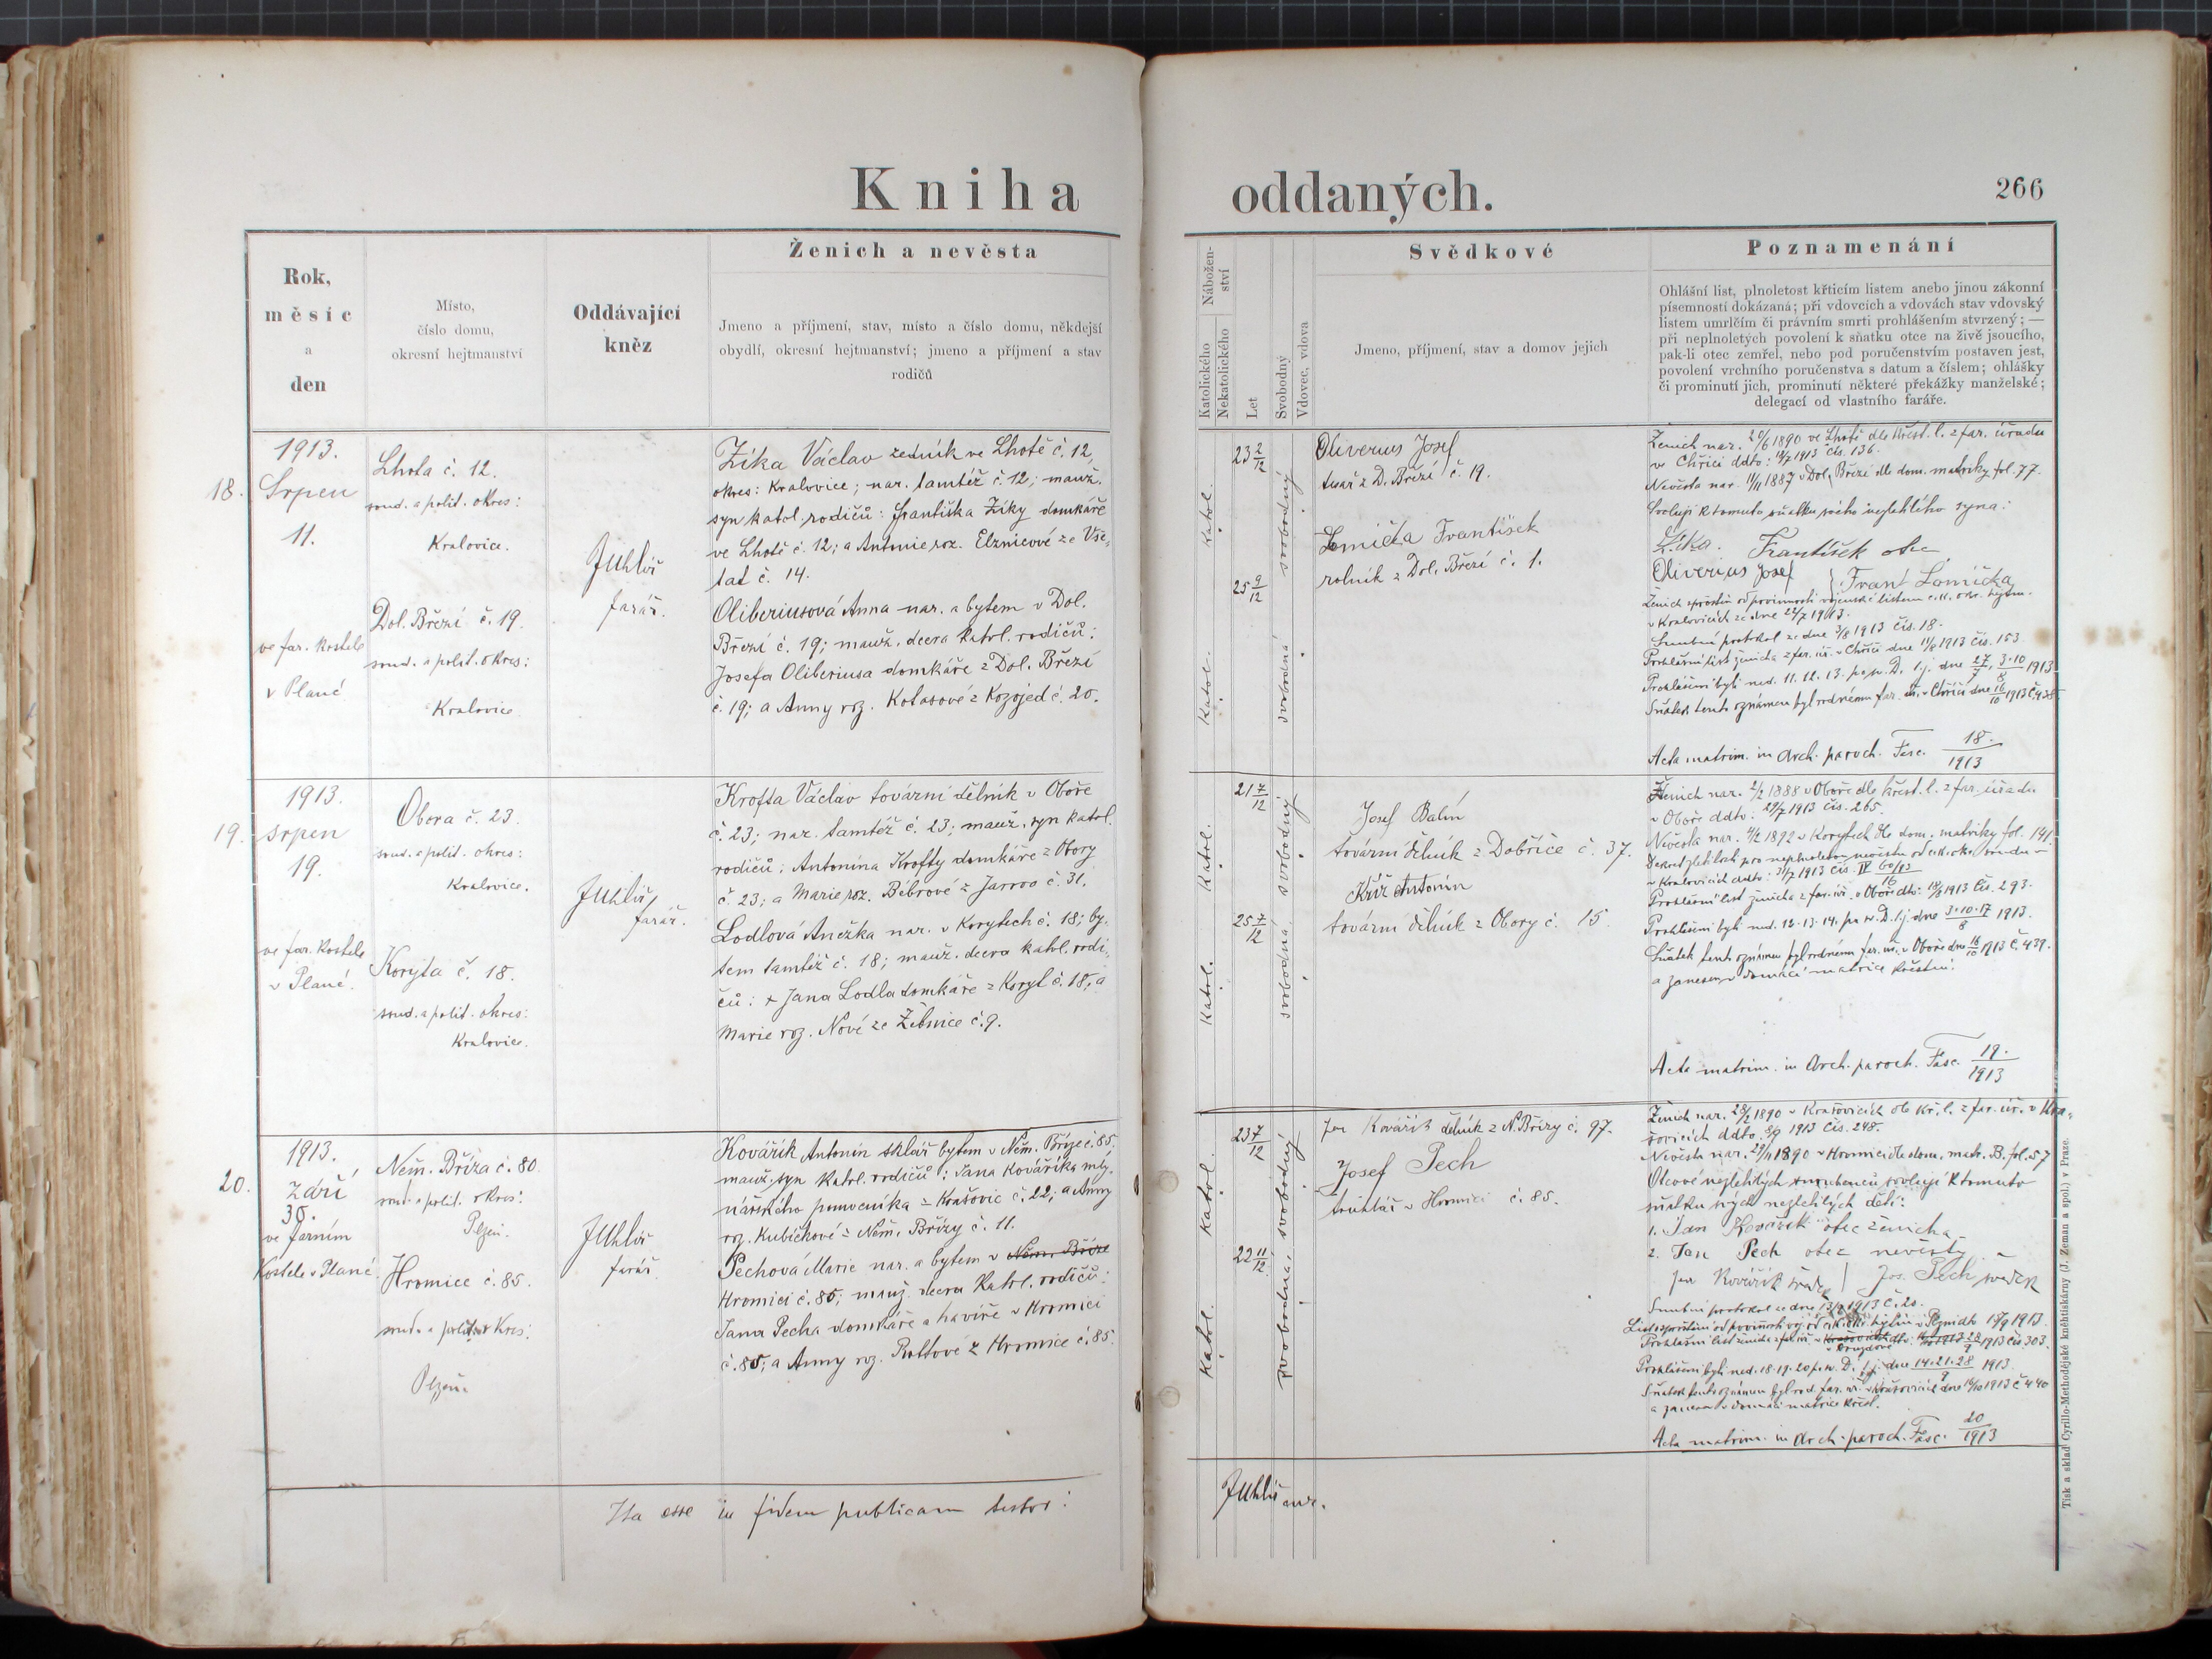 Kniha oddaných.
266
Rok,
měsíc
a
den
Místo,
číslo domu,
okresní hejtmanství
Oddávající
kněz
Ženich a nevěsta
Jmeno a příjmení, stav, místo a číslo domu, někdejší
obydlí, okresní hejtmanství; jmeno a příjmení a stav
rodičů
Nábožen-
ství
Katolického
Nekatolického
Let
Svobodný
Vdovec, vdova
Svědkové
Jmeno, příjmení, stav a domov jejich
Poznamenání
Ohlášní list, plnoletost křticím listem anebo jinou zákonní
písemností dokázaná; při vdovcích a vdovách stav vdovský
listem umrlčím či právním smrti prohlášením stvrzený; —
při neplnoletých povolení k sňatku otce na živě jsoucího,
pak-li otec zemřel, nebo pod poručenstvím postaven jest,
povolení vrchního poručenstva s datum a číslem; ohlášky
či prominutí jich, prominutí některé překážky manželské;
delegací od vlastního faráře.
18.
1913.
Srpen
11.
ve far. kostele
v Plané
Lhota č. 12.
soud. a polit. okres:
Kralovice.
Dol. Březí č. 19.
soud. a polit. okres:
Kralovice
JUhlíř
farář.
Zíka Václav zedník ve Lhotě č. 12,
okres: Kralovice; nar. tamtéž č. 12; manž.
syn katol. rodičů: Františka Zíky domkáře
ve Lhotě č. 12; a Antonie roz. Elznicové ze Vše-
tat č. 14.
Oliberiusová Anna nar. a bytem v Dol.
Březí č. 19; manž. dcera katol. rodičů:
Josefa Oliberiusa domkáře z Dol. Březí
č. 19; a Anny roz. Kotasové z Kozojed č. 20.
katol.
23 2/12
svobodný
katol.
25 9/12
svobodná
Oliverius Josef
tesař z D. Březí č. 19.
Lomička František
rolník z Dol. Březí č. 1.
Ženich nar. 20/6 1890 ve Lhotě dle křest. l. z far. úřadu
ve Chříči ddto: 1913 čís. 136.
Nevěsta nar. 11/11 1887 v Dol. Březí dle dom. matriky fol. 77.
Svoluji k tomuto sňatku svého nezletilého syna:
Zíka František otec
Oliverius Josef Frant Lomička
v Kralovicích ze dne 22/7 1913.
Snubní protokol ze dne 3/8 1913 čís. 18.
Prohlášní list ženicha z far. úř. v Chříči dne 11/8 1913 čís. 153
Prohlášeni byli ned. 11. 12. 13. po sv. D. t.j. dne 27/7, 3·10/8 1913
Sňatek tento oznámen byl rodnému far. úř. v Chříči dne 16/10 1913 č. 438
Acta matrim. in Arch. paroch. Fasc. 18./1913
19.
1913.
srpen
19.
ve far. kostele
v Plané.
Obora č. 23.
soud. a polit. okres:
Kralovice.
Koryta č. 18.
soud. a polit. okres:
Kralovice.
JUhlíř
farář.
Krofta Václav tovární dělník v Oboře
č. 23; nar. tamtéž č. 23; manž. syn katol.
rodičů: Antonína Krofty domkáře z Obory
č. 23; a Marie roz. Bébrové z Jarova č. 31.
Lodlová Anežka nar. v Korytech č. 18; by-
tem tamtéž č. 18; manž. dcera katol. rodi-
čů: + Jana Lodla domkáře z Koryt č. 18, a
Marie roz. Nové ze Žebnice č. 9.
katol.
21 7/12
svobodný
katol.
25 7/12
svobodná
Josef Balín
tovární dělník z Dobříče č. 37.
Kříž Antonín
tovární dělník z Obory č. 15.
Ženich nar. 1888 v Oboře dle křest. l. z far. úřadu
v Oboře ddto: 29/7 1913 čís. 265.
Nevěsta nar. 1892 v Korytech dle dom. matriky fol. 141.
v Kralovicích ddto: 31/7 1913 čís. IV
Prohlášní list ženicha z far. úř. v Oboře dto: 18/8 1913 čís. 293.
Prohlášeni byli ned. 12·13·14. po sv. D. t.j. dne 3·10·17/8 1913.
Sňatek tento oznámen byl rodnému far. úř. v Oboře dne 16/10 1913 č. 439.
a zanesen v domácí matrice křestní.
Acta matrim. in Arch. paroch. Fasc. 19./1913
20.
1913.
září
30.
ve farním
kostele v Plané
Něm. Bříza č. 80
soud. a polit. okres:
Plzeň.
Hromice č. 85.
soud. a polit. okres:
Plzeň.
JUhlíř
farář
Kovářík Antonín sklář bytem v Něm. Bříze č. 85,
manž. syn katol. rodičů: Jana Kováříka mly-
nářského pomocníka z Krašovic č. 22; a Anny
roz. Kubíčkové z Něm. Břízy č. 11.
Pechová Marie nar. a bytem v Něm. Bříze
Hromici č. 85; manž. dcera katol. rodičů:
Jana Pecha domkáře a havíře v Hromici
č. 85; a Anny roz. Rottové z Hromice č. 85.
katol.
23 7/12
svobodný
katol.
22 11/12
svobodná
Jan Kovářík dělník z N. Břízy č. 97.
Josef Pech
truhlář v Hromici č. 85.
Ženich nar. 28/2 1890 v Krašovicích dle kř. l. z far. úř. v Kra-
šovicích ddto. 8/9 1913 čís. 248.
Nevěsta nar. 1890 v Hromici dle dom. matr. B. fol. 57
Otcové nezletilých snoubenců svolují k tomuto
sňatku svých nezletilých dětí:
1. Jan Kovářík otec ženicha
2. Jan Pech otec nevěsty
Jan Kovářík svědek Jos. Pech svědek
Snubní protokol ze dne 13/9 1913 č. 20.
Prohlášeni byli ned. 18·19·20 p. sv. D. t.j. dne 14·21·28/9 1913
Sňatek tento oznámen byl rod. far. úř. v Krašovicích dne 16/10 1913 č 440
a zanesen v domácí matrice křest.
Acta matrim. in Arch. paroch. Fasc. 20/1913
Ita esse in fidem publicam testor:
JUhlíř mp.
Tisk a sklad Cyrillo-Methodějské knihtiskárny (J. Zeman a spol.) v Praze.